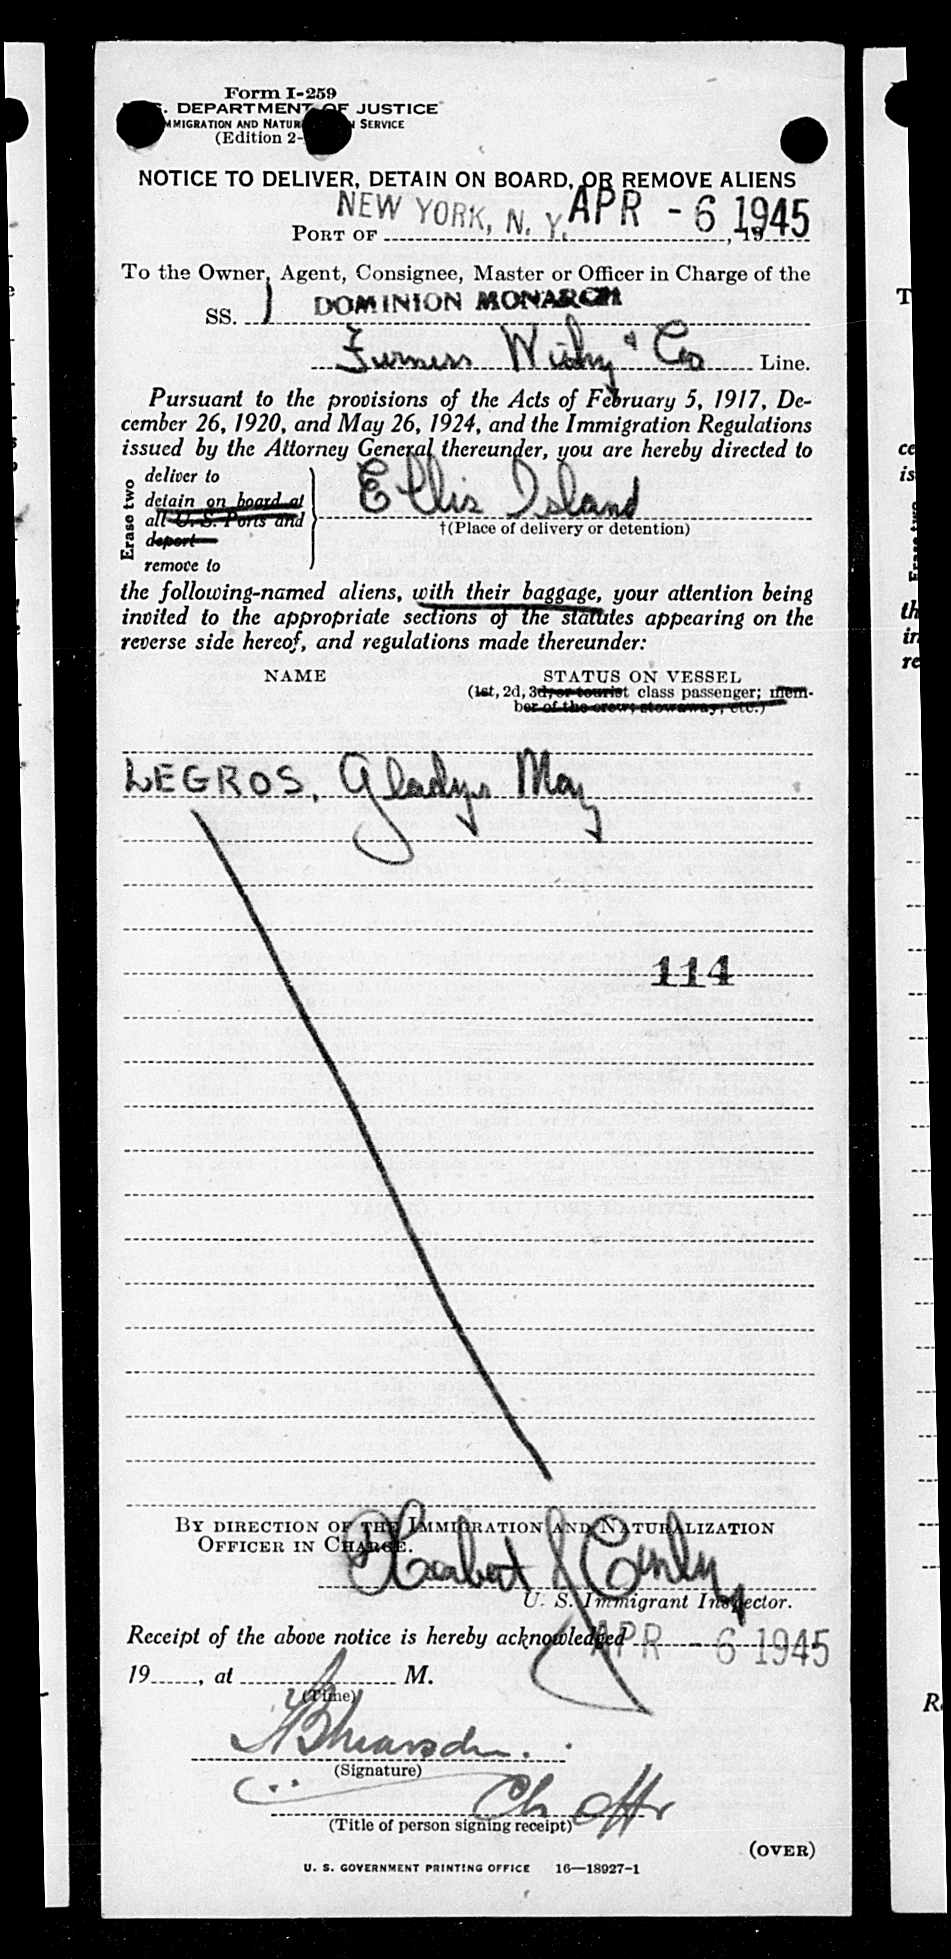 Form I-259
U. S. DEPARTMENT OF JUSTICE
IMMIGRATION AND NATURALIZATION SERVICE
(Edition 2-
NOTICE TO DELIVER, DETAIN ON BOARD, OR REMOVE ALIENS
NEW YORK, N. Y. APR - 6 1945
PORT OF , 19
To the Owner, Agent, Consignee, Master or Officer in Charge of the
SS. DOMINION MONARCH
Furness Withy & Co Line.
Pursuant to the provisions of the Acts of February 5, 1917, De-
cember 26, 1920, and May 26, 1924, and the Immigration Regulations
issued by the Attorney General thereunder, you are hereby directed to
Erase two
deliver to
detain on board at
all U. S. Ports and
deport
remove to
Ellis Island
†(Place of delivery or detention)
the following-named aliens, with their baggage, your attention being
invited to the appropriate sections of the statutes appearing on the
reverse side hereof, and regulations made thereunder:
NAME STATUS ON VESSEL
(1st, 2d, 3d, or tourist class passenger; mem-
ber of the crew; stowaway, etc.)
LEGROS, Gladys May
114
BY DIRECTION OF THE IMMIGRATION AND NATURALIZATION
OFFICER IN CHARGE.
U. S. Immigrant Inspector.
Receipt of the above notice is hereby acknowledged APR - 6 1945
19 , at M.
(Time)
(Signature)
Ch Offr
(Title of person signing receipt)
(OVER)
U. S. GOVERNMENT PRINTING OFFICE 16—18927-1